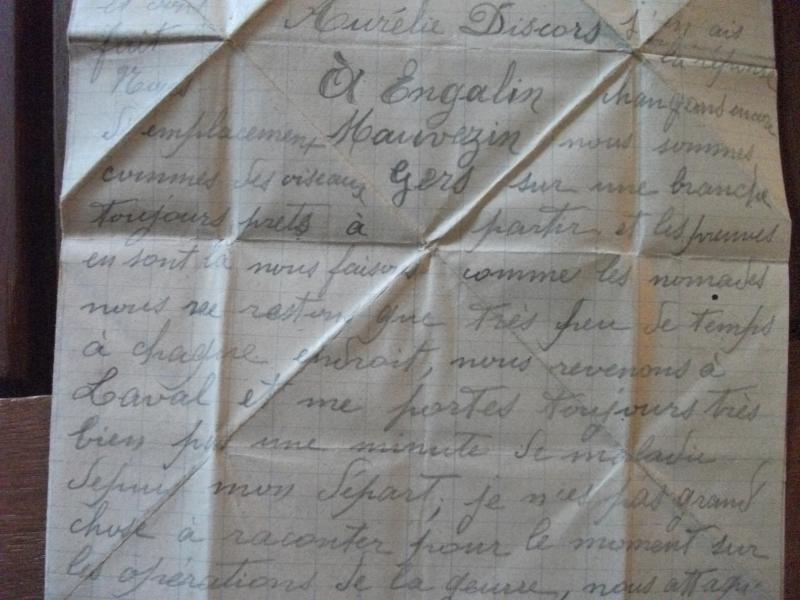 et
Aurélie Discors
fait la réponse
Nous À Engalin changeons encore
d'emplacement Mauvezin nous sommes
commes des oiseaux Gers sur une branche
toujours prets à partir, et les preuves
en sont là nous faisons comme les nomades
nous ne reston que très peu de temps
à chaque endroit, nous revenons à
Laval et me portes toujours très
bien pas une minute de maladie
depuis mon départ, je n'es pas grand
chose à raconter pour le moment sur
les opérations de la geurre, nous attaqu